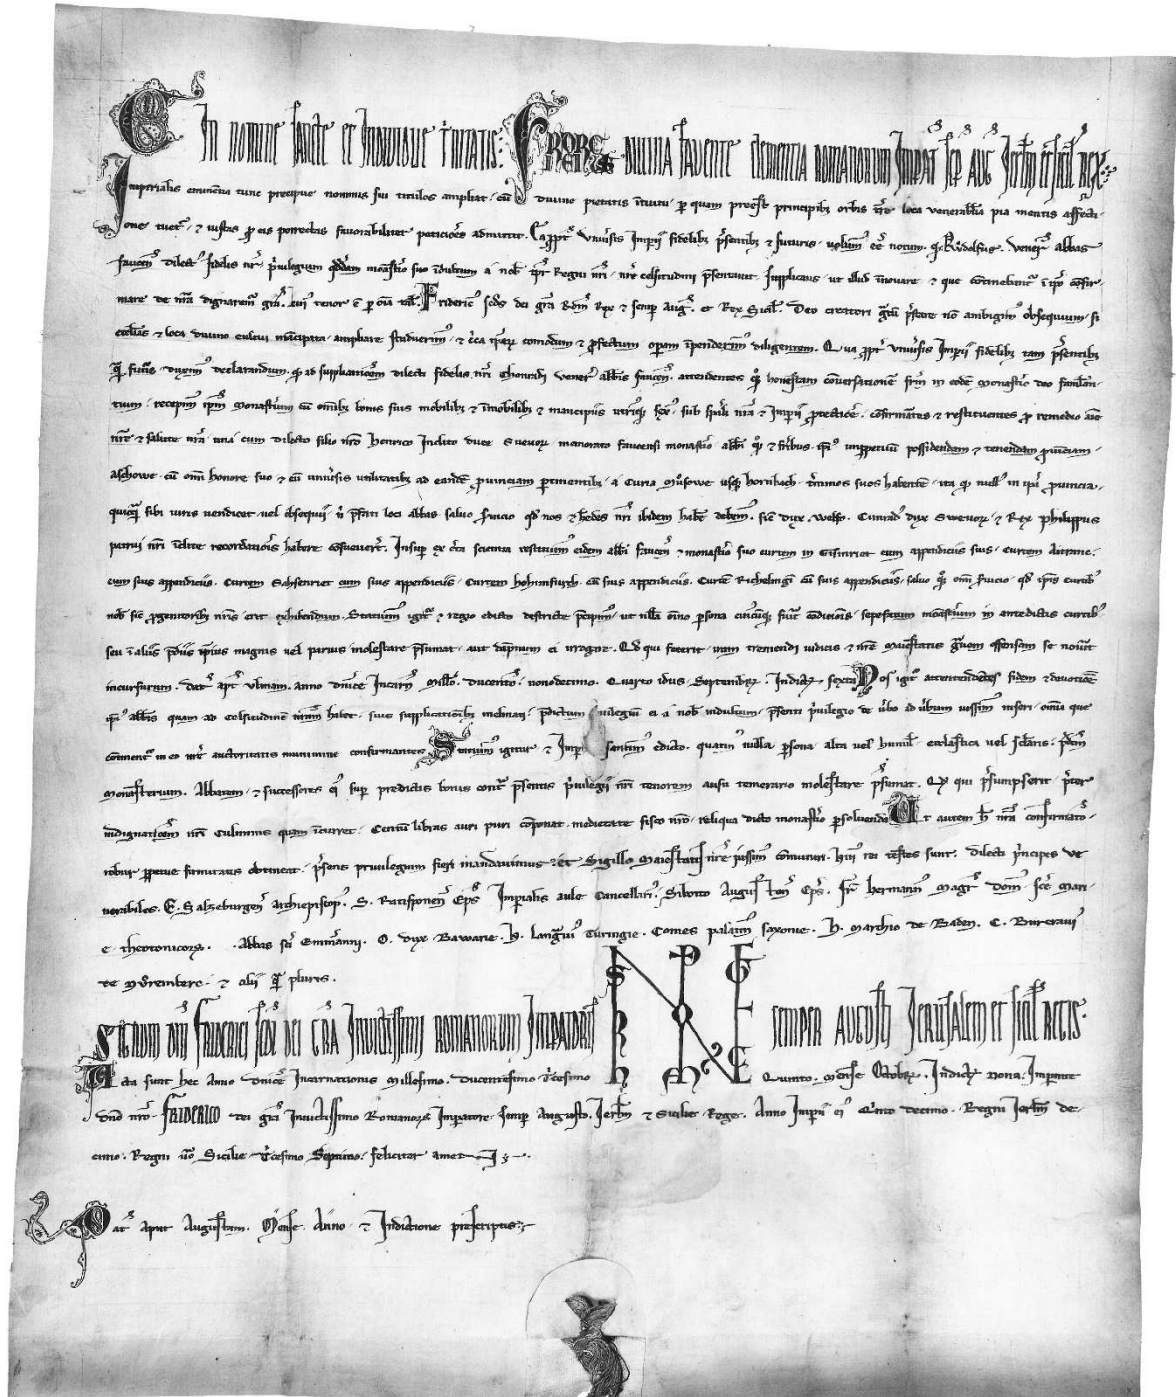 C In nomine sancte et Individue trinitatis: FRIDERICUS divina favente clementia Romanorum Impator semp Aug Ierlm et Sicil Rex
Imperialis eminentia tunc precipue nominis sui titulos ampliat cu divino pietatis intuitu p quam preest principibz orbis terre loca venerabilia pia mentis affecti-
one tuet & iustas p eis porrectas favorabiliter peticiones admittit. Ea propt Universis Impii fidelibz psentibz & futuris volum ee notum q Rudolfus Vener abbas
faucen dilect fidelis nr privilegium qddam monastio suo indultum a nob ipr Regni nri nre celsitudini psentavit Supplicans ut illud innovare & que continebant i ipo confir
mare de nra dignarem gra cui tenor e p oia tal Frideric scds dei gra Romr Rex & semp Aug et Rex Sicil Deo creatori gtu pstare no ambigim obsequium si
ecclias & loca divino cultui mancipata ampliare studuerim & circa ipar comodum & pfectum opam ipenderim diligentem Qua ppt Universis Impii fidelibz tam psentibz
q futuris duxim declarandum q ad supplicatoem dilecti fidelis nri Chonradi vener abbis faucen attendentes q honestam conversatione frm in eode monastio deo famlan
tium recepim ipm monastium cu omibz bonis suis mobilibz & imobilibz & mancipiis utriq sex sub spali nra & Impii ptectioe confirmates & restituentes p remedio aie
nre & salute nra una cum dilecto filio nro Henrico Inclito duce Suevor memorato faucensi monastio abbi q & frbus ipi imppetuu possidendam & tenendam pvinciam
aschowe cu omi honore suo & cu universis utilitatibz ad eande pvinciam ptinentibz a Curia Musowe usq hornbach tminos suos habente ita q null in ipa pvincia
quicq sibi iuris vendicet vel obsequii n pfati loci abbas salvo servicio qd nos & hedes nri ibidem habe debem sic dux Welfo Cunrad dux Swevor & Rex philippus
patrui nri inclite recordatiois habere consuevert Insup ex cta sciencia restituim eidem abbi faucen & monastio suo curtem in Gisinriet cum appendiciis suis curtem Aitrane
cum suis appendiciis Curtem Sahsenriet cum suis appendiciis curtem hohinfurch cu suis appendiciis Curte Richelingi cu suis appendiciis salvo q omi svicio qd ipis curtib
nob sic pgenitoribz nris erit exhibendum Statuim igit & regio edicto districte pcipim ut nulla omo psona cuiuscuq fuit codicionis sepefatum moastium in antedictis curtib
seu i aliis pdiis ipius magnis vel parvis molestare psumat aut dapnum ei irrogare Qd qui fecerit iram tremendi iudicis & nre maiestatis gvem offensam se novit
incursurum. dat apt Ulmam anno dnice Incarn Millo Ducento nonodecimo Quarto idus Septembr Indict sexta Nos igit attendentes fidem & devotioe
ipi abbis quam ad celsitudine nram habet suis supplicatioibz inclinati pdictum privilegiu ei a nob indultum psenti privilegio de vbo ad vbum iussim inseri omia que
continent in eo nre auctoritatis munimine confirmantes Statuim igitur & Impiali sanctim edicto quatin nulla psona alta vel humil ecclastica vel sclaris pdcm
monasterium Abbatem & successores ei sup predictis bonis cont psentis privilegii nri tenorem ausu temerario molestare psumat Qd qui psumpserit preter
indignatioem nri Culminis quam icurret Centum libras auri puri coponat medietate fisco nro reliqua dicto monastio psolvenda Ut autem hec nra confirmato
robur ppetue firmitatis obtineat psens privilegium fieri mandavimus et Sigillo Maiestatis nre iussim comuniri hui rei testes sunt dilecti pncipes ve
nerabiles E Salzeburgen archiepiscop S Ratisponen Eps Impialis aule Cancellari Siboto Augusten Eps Fr hermann Magr Dom Sce Mari
e theotonicor Abbas sci Emmanni O dux Bawarie H langvi Turingie Comes palatin saxonie H Marchio de Baden C Burcravi
de Nurembert & alii q plures
Signum dni Friderici scdi dei gra Invictissimi Romanorum Impatoris semper Augusti Jerusalem et Sicil Regis
Acta sunt hec Anno dnice Incarnationis Millesimo ducentesimo Tcesimo Quinto Mense Octobr Indict nona Impante
dno nro FRIDERICO dei gra Invictissimo Romanor Impatore semp Augusto Ierlm & Sicilie Rege Anno Impii ei Qinto decimo Regni Ierlm de-
cimo Regni vo Sicilie Tcesimo Septimo feliciter amen
Dat aput Augustam Mense Anno & Indictione prescriptis